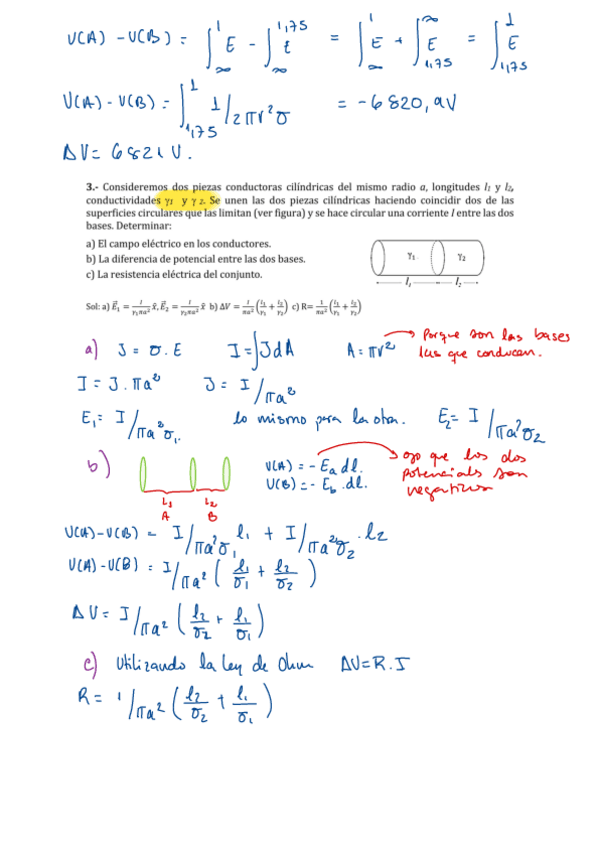 V(A) - V(B) = ∫_∞^1 E - ∫_∞^1,75 E = ∫_∞^1 E + ∫_1,75^∞ E = ∫_1,75^1 E
V(A) - V(B) = ∫_1,75^1 1/2πr²σ = -6820,9V
ΔV = 6821 V.
3.- Consideremos dos piezas conductoras cilíndricas del mismo radio a, longitudes l₁ y l₂,
conductividades γ₁ y γ₂. Se unen las dos piezas cilíndricas haciendo coincidir dos de las
superficies circulares que las limitan (ver figura) y se hace circular una corriente I entre las dos
bases. Determinar:
a) El campo eléctrico en los conductores.
b) La diferencia de potencial entre las dos bases.
c) La resistencia eléctrica del conjunto.
γ₁ γ₂
l₁ l₂
Sol: a) E⃗₁ = I/γ₁πa² x̂, E⃗₂ = I/γ₂πa² x̂ b) ΔV = I/πa² (l₁/γ₁ + l₂/γ₂) c) R= 1/πa² (l₁/γ₁ + l₂/γ₂)
a) J = σ.E I = ∫JdA A = πr² → Porque son las bases
las que conducen.
I = J.πa² J = I/πa²
E₁ = I/πa²σ₁. lo mismo para la otra. E₂ = I/πa²σ₂
b) L₁ L₂
A B
V(A) = - Ea dl. → ojo que los dos
V(B) = - Eb .dl. potencials son
negativos
V(A) - V(B) = I/πa²σ₁ l₁ + I/πa²σ₂ . l₂
V(A) - V(B) = I/πa² (l₁/σ₁ + l₂/σ₂)
ΔV = I/πa² (l₂/σ₂ + l₁/σ₁)
c) Utilizando la ley de Ohm ΔV = R.I
R = 1/πa² (l₂/σ₂ + l₁/σ₁)